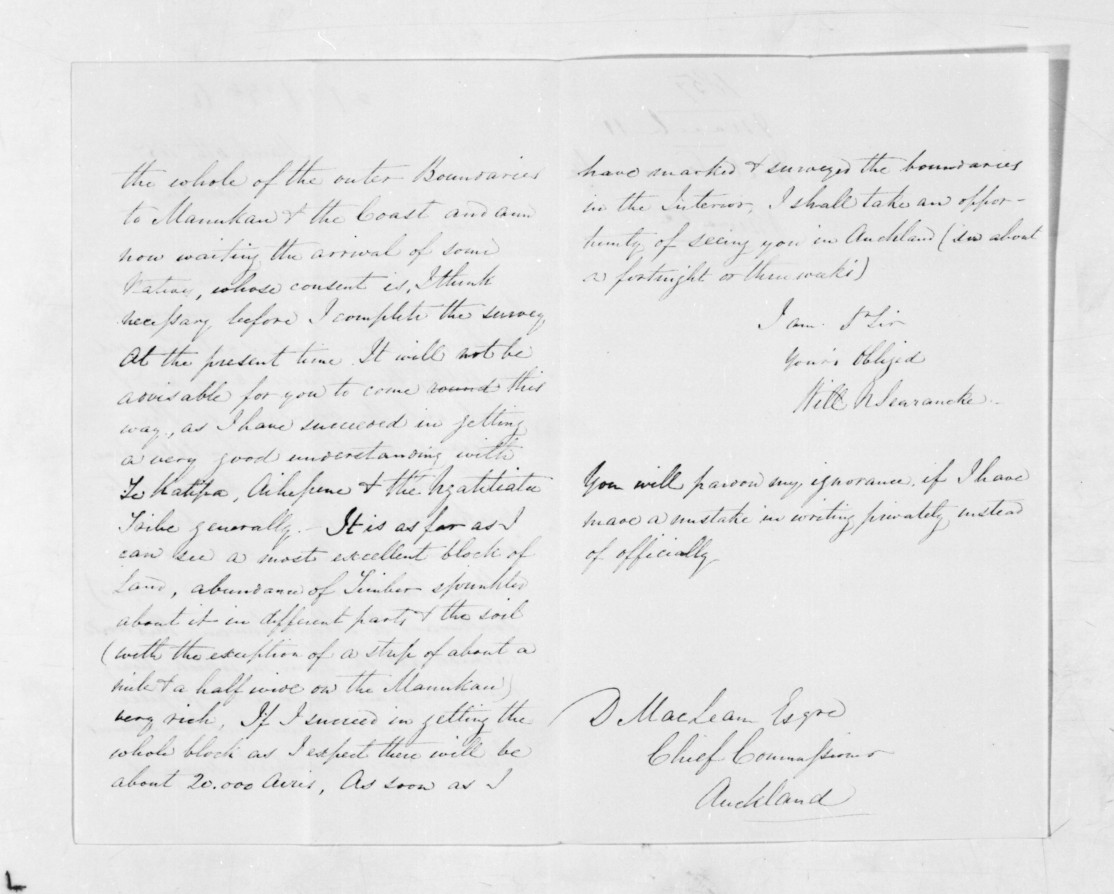 the whole of the outer Boundaries
to Manukau & the Coast and am
now waiting the arrival of some
Natives, whose consent is, I think
necessary before I complete the survey
At the present time It will not be
advisable for you to come round this
way, as I have succeeed in getting
a very good understanding with
Te Katipa, Aihepene & the Ngatitiata
Tribe generally. - It is as far as I
can see a most excellent block of
Land, abundance of Timber sprinkled
about it in different parts & the soil
(with the exception of a strip of about a
mile & a half wide on the Manukau)
very rich, If I succeed in getting the
whole block as I expect there will be
about 20.000 Acres, As soon as I
have marked & surveyed the boundaries
in the Interior, I shall take an oppor-
tunity of seeing you in Auckland (in about
a fortnight or three weeks)
I am Sir
Your's Obliged
Will N Searancke
You will pardon my ignorance, if I have
made a mistake in writing privately instead
of officially
D MacLean Esqre
Chief Commissioner
Auckland
L